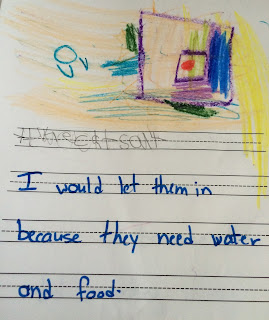 I would let them in
because they need water
and food.